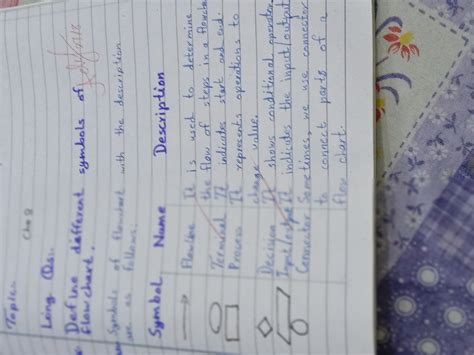 Topic:
Cha 8
Long Qs:
Define different symbols of
flowchart.
Symbols of flowchart with the description
are as follows.
Symbol Name Description
Flowline It is used to determine
the flow of steps in a flowcha
Terminal It indicates start and end.
Process It represents operations to
change value.
Decision It shows conditional operator
Input/output It indicates the input/output
Connector Sometimes, we use connector
to connect parts of a
flow chart.